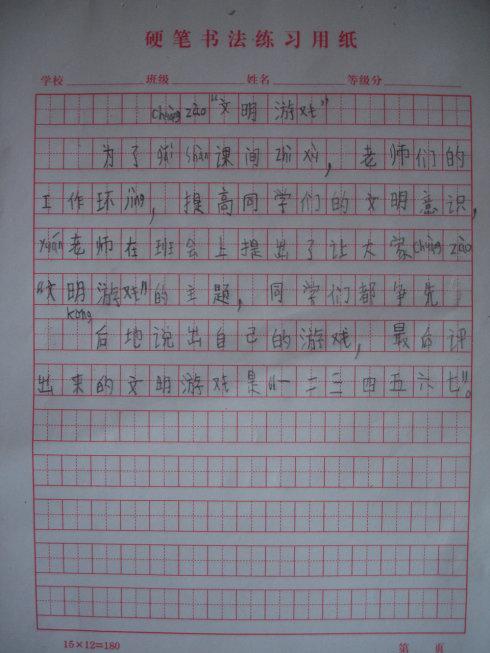 硬笔书法练习用纸
学校 班级 姓名 等级分
chuàng zào“文明游戏”
为了gǎi shàn课间zhì xù，老师们的
工作环jìng，提高同学们的文明意识，
yuán老师在班会上提出了让大家chuàng zào
“文明游戏”的主题，同学们都争先
kǒng
后地说出自己的游戏，最后评
出来的文明游戏是“一二三四五六七”。
15×12=180
第 页